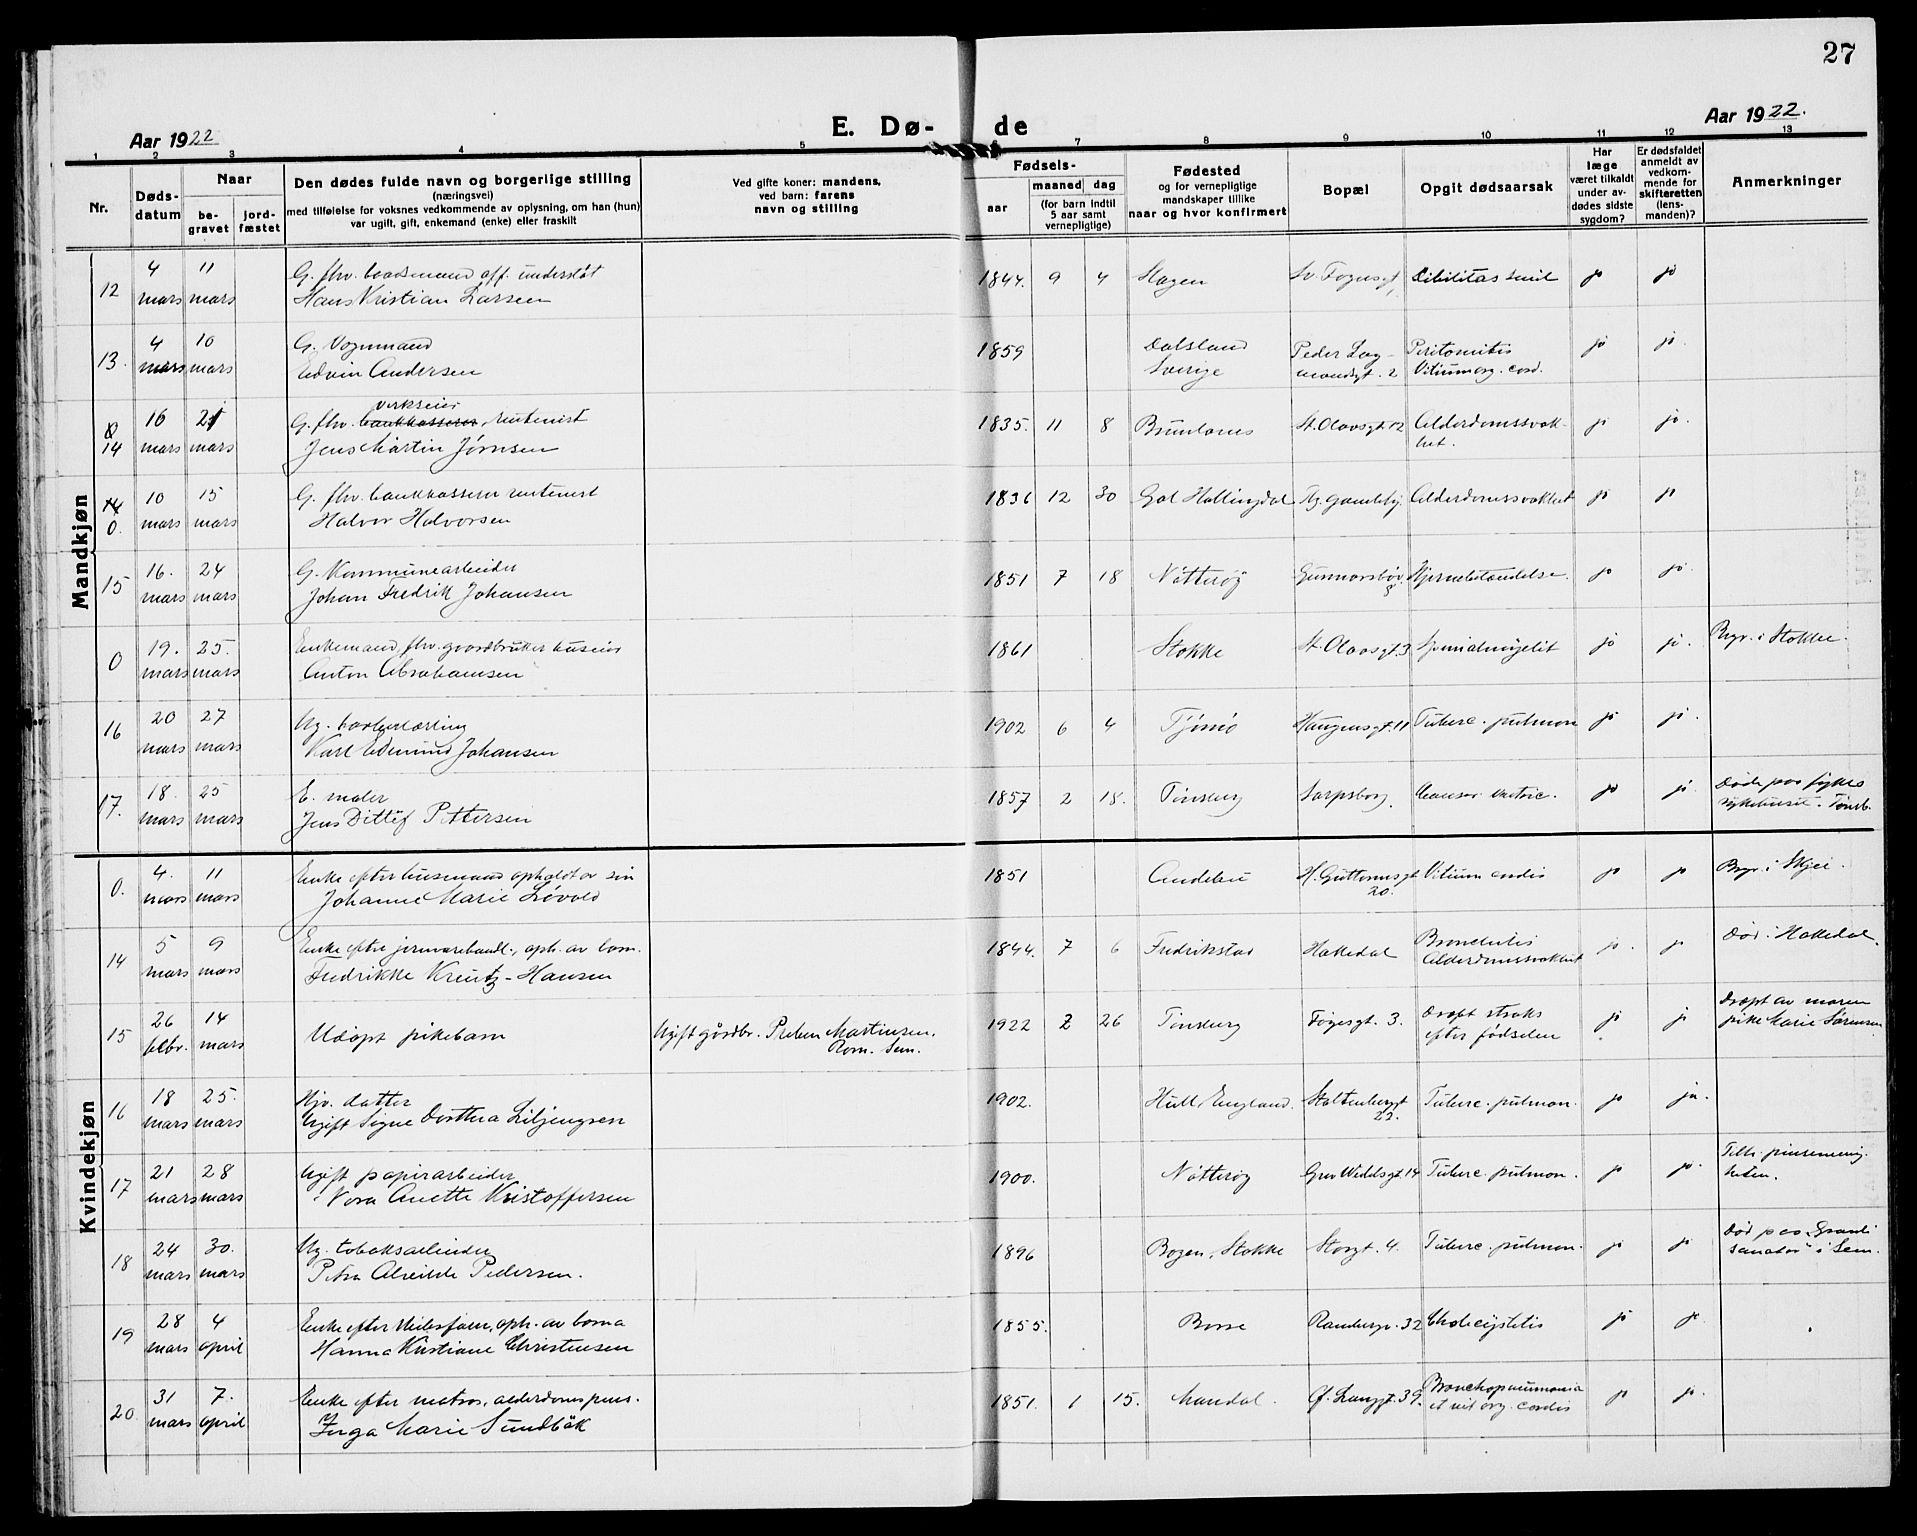 27
Aar 1922
E. Dø- de
Aar 1922.
1 2 3 4 5 7 8 9 10 11 12 13
Nr.
Døds-
datum
Naar
be-
gravet
jord-
fæstet
Den dødes fulde navn og borgerlige stilling
(næringsvei)
med tilføielse for voksnes vedkommende av oplysning, om han (hun)
var ugift, gift, enkemand (enke) eller fraskilt
Ved gifte koner: mandens,
ved barn: farens
navn og stilling
Fødsels-
aar
maaned dag
(for barn indtil
5 aar samt
vernepligtige)
Fødested
og for vernepligtige
mandskaper tillike
naar og hvor konfirmert
Bopæl
Opgit dødsaarsak
Har
læge
været tilkaldt
under av-
dødes sidste
sygdom?
Er dødsfaldet
anmeldt av
vedkom-
mende for
skifteretten
(lens-
manden)?
Anmerkninger
Mandkjøn
12 4 11 G. fhv. baadsmand off. understøt 1844. 9 4 Slagen Sv. Foynsgt. Debilitas senil jo jo
mars mars Hans Kristian Larsen
13. 4 10 G. Vognmand 1859 Dalsland Peder Bog- Peritonitis jo jo.
mars mars Edvin Andersen Sverige mandsgt. 2 Vitium org. cord.
verkseier
0 16 21 G. fhv. bankkasserer rentenist 1835. 11 8 Brunlanes St. Olavsgt. 12 Alderdomssvak- jo jo.
14 mars mars Jens Martin Jørnsen het.
14 10 15 G. fhv. bankkasserer rentenist 1836 12 30 Gol Hallingdal Tbg. gamleby. Alderdomssvakhet jo jo
0. mars mars Halvor Halvorsen
15 16. 24 G. Kommunearbeider 1851 7 18 Nøtterøy Gunnarsbøv. Hjernebetændelse. jo jo.
mars mars Johan Fredrik Johansen
0 19. 25. Enkemand, fhv. gaardbruker huseier 1861 Stokke St. Olavsgt. 3 jo jo. Begr. i Stokke.
mars mars Anton Abrahamsen
16 20 27 Ug. barberlærling 1902 6 4 Tjømø Haugensgt. 11 Tuberc. pulmon jo jo.
mars mars Karl Edmund Johansen
17. 18. 25 E. maler 1857 2 18. Tønsberg Sarpsborg. Cancer ventric. jo jo. Døde paa fylkes
mars mars Jens Ditlef Pettersen sykehuset i Tønsb.
Kvindekjøn
0. 4. 11 Enke efter husmand opholdt av sin 1851 Andebu H. Guttormsgt. Vitium cordis jo jo Begr. i Skjee.
mars mars Johanne Marie Løvold 20.
14 5 9 Enke efter jernvarehandl., oph. av barn. 1844. 7 6 Fredrikstad Hakedal Bronchitis jo. jo Død i Hakedal.
mars mars Fredrikke Kreutz-Hansen Alderdomssvakhet
15 26 14 Udøpt pikebarn Ugift gårdbr. Preben Martinsen. 1922 2 26 Tønsberg Føyesgt. 3. Dræpt straks jo jo Dræpt av moren
febr. mars Rom. Sem. efter fødselen pike Marie Sørensen
16 18 25. Hjv. datter 1902. Hull England. Stoltenbergsgt. Tuberc. pulmon. jo ja.
mars mars Ugift Signe Dorthea Liljengren 22.
17 21 28 Ugift papirarbeider 1900. Nøtterøy Grev Wedelsgt. 14 Tuberc. pulmon. jo jo. Tilh. pinsemenig-
mars mars Nora Anette Kristoffersen heten.
18 24 30. Ug. tobaksarbeider 1896 Bogen, Stokke Storgt. 4. Tuberc. pulmon. jo jo Død paa "Grandi
mars mars Petra Alvilde Pedersen. sanator" i Sem.
19 28 4 Enke efter seilesjøm., oph. av barna 1855. Borre Rambergv. 32 Cholecystitis jo jo
mars april Hanna Kristiane Christensen
20. 31 7. Enke efter matros, alderdoms pens. 1851. 1 15. Mandal. Ø. Langgt. 39. Bronchopneumonia jo jo.
mars april Inga Marie Sundbäk et vit org. cordis